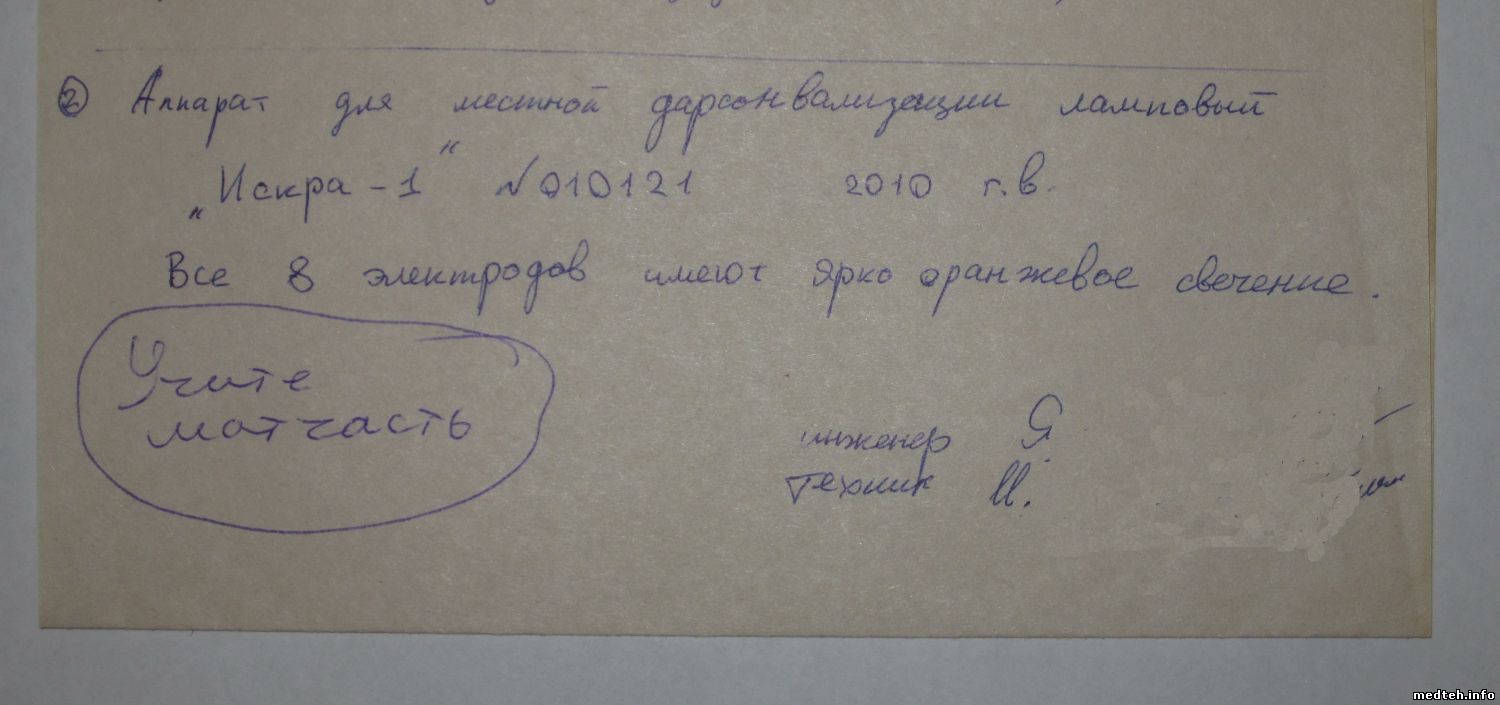 ② Аппарат для местной дарсонвализации ламповый
„Искра-1" №010121 2010 г.в.
Все 8 электродов имеют ярко оранжевое свечение.
Учите
матчасть
инженер Я
техник И.
medteh.info